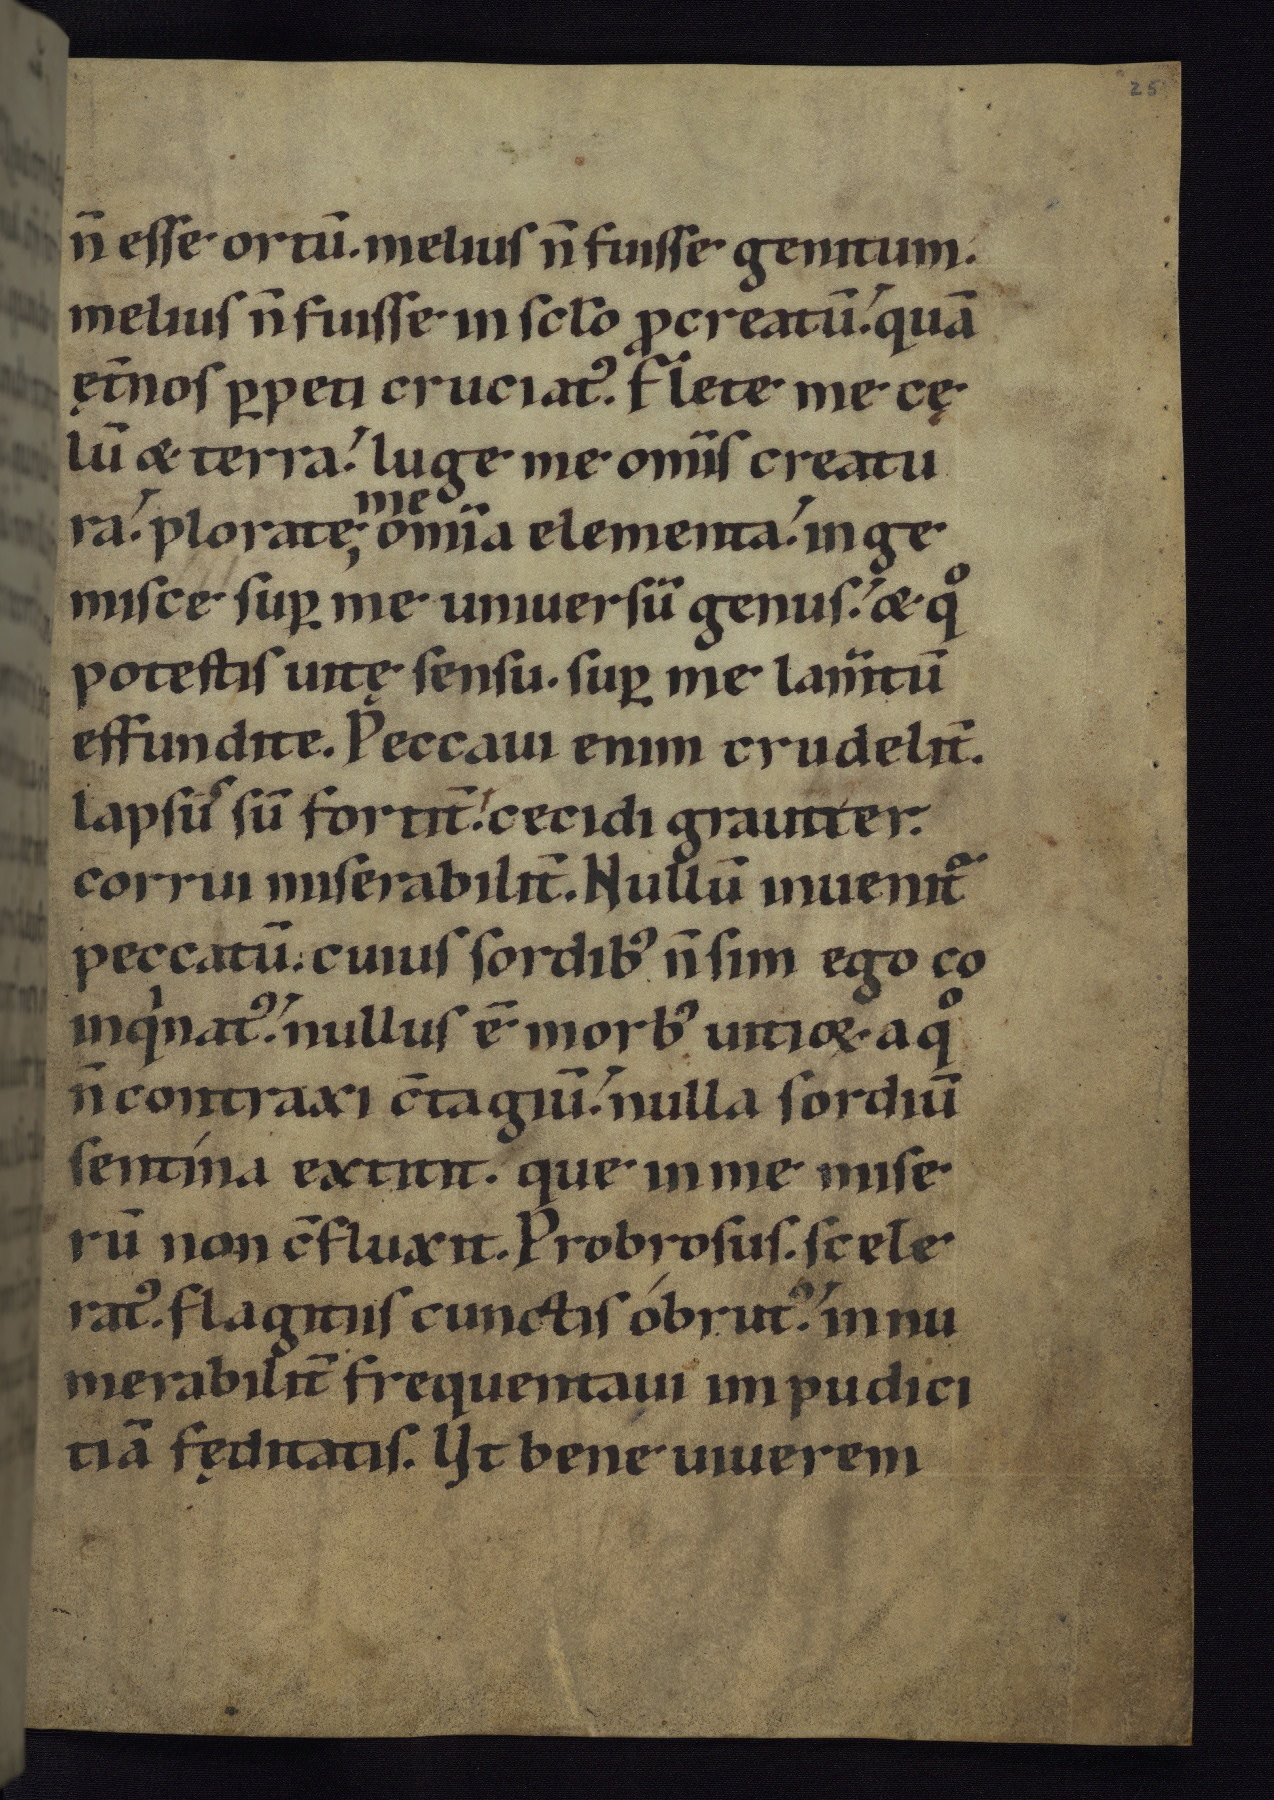 25
n̄ esse ortū. melius n̄ fuisse genitum.
melius n̄ fuisse in sclo ꝓcreatū. quā
ęt̄nos ꝑpeti cruciat᾿. Flete me cę
lū & terra. luge me om̄is creatu
ra. plorate, me om̄ia elementa. inge
misce suꝑ me uniuersū genus. & qͦ
potestis uitę sensu. suꝑ me lam̄tū
effundite. Peccaui enim crudelit̄.
lapsus sū fortit̄. cecidi grauiter.
corrui miserabilit̄. Nullū inuenit᷑
peccatū. cuius sordib᾿ n̄ sim ego co
inqⁱnat᾿. nullus ē morb᾿ uiti&. a qͦ
n̄ contraxi c̄tagiū. nulla sordiū
sentína extitit. que in me mise
rū non c̄fluxit. Probrosus. scele
rat᾿. flagitiis cunctis óbrut᾿. innu
merabilit̄ frequentaui impudici
tiā fęditatis. Ut bene uiuerem